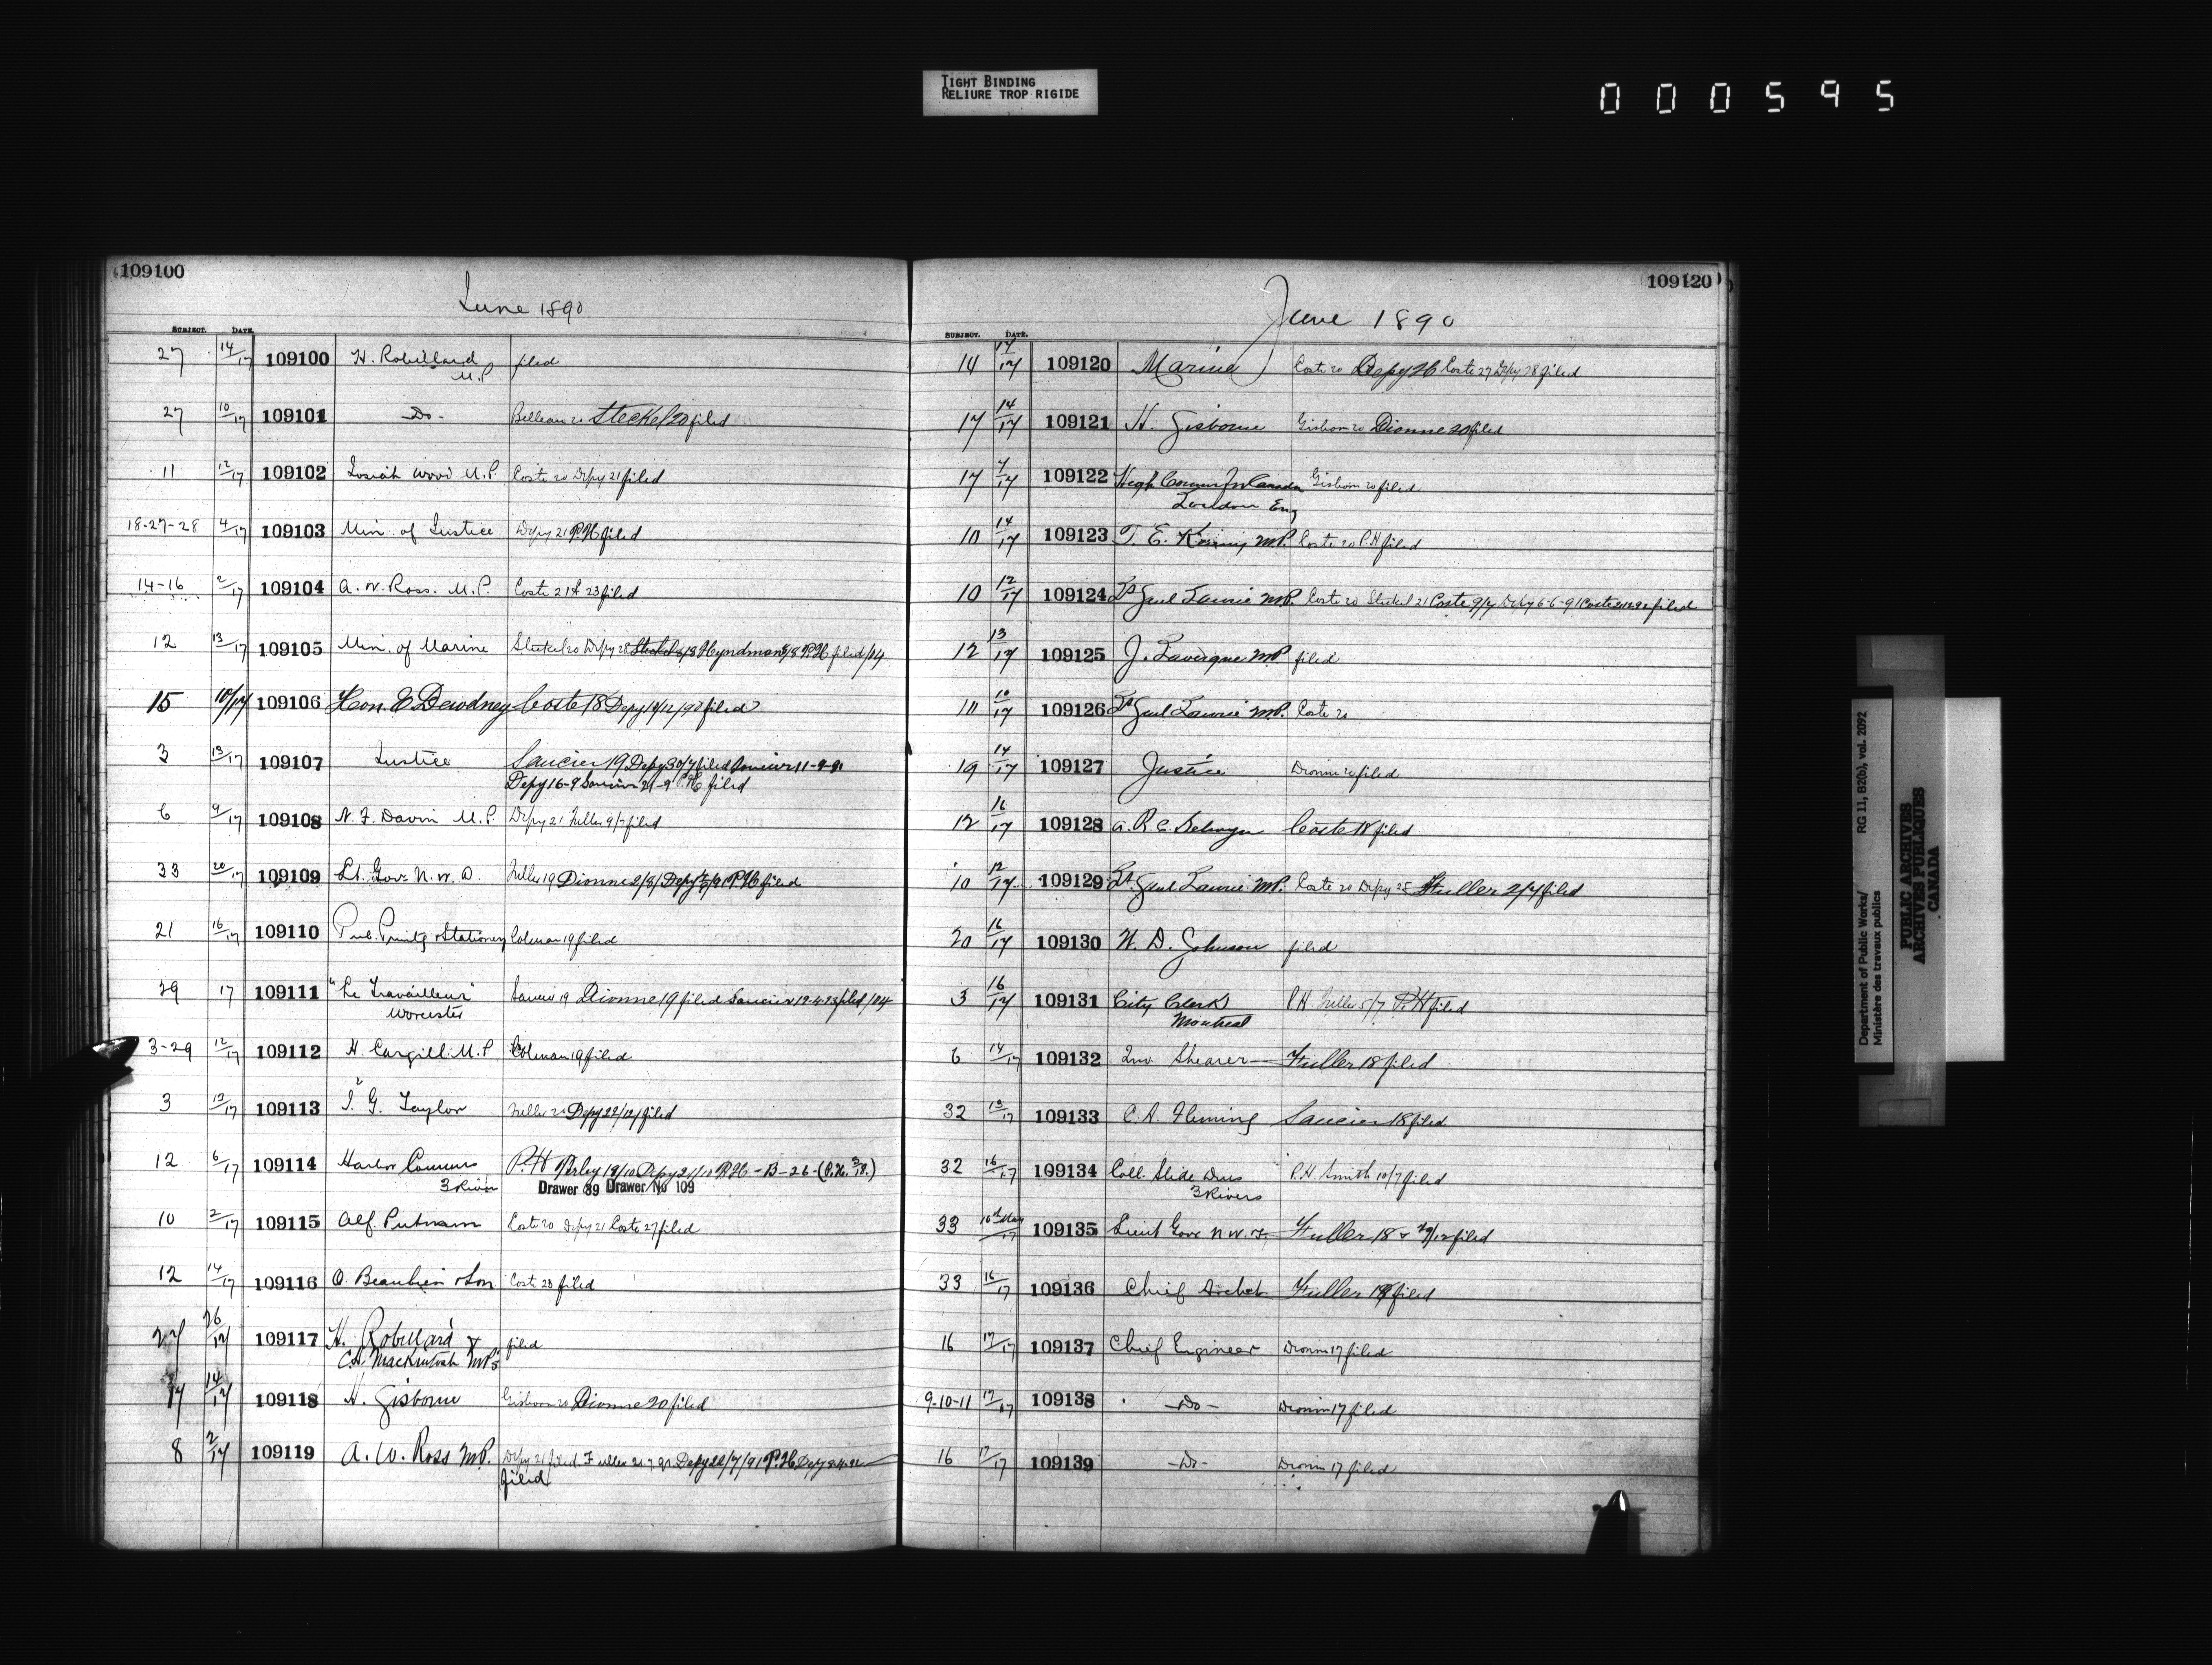 TIGHT BINDING
RELIURE TROP RIGIDE
000595
109100
June 1890
SUBJECT. DATE.
27 14/17 109100 H. Robillard filed
M.P.
27 10/17 109101 -Do- Belleau 20 Steckel 20 filed
11 12/17 109102 Josiah Wood M.P. Coste 20 Depy 21 filed
18-27-28 4/17 109103 Min. of Justice Depy 21 P.H filed
14-16 2/17 109104 A. W. Ross. M.P. Coste 21 & 23 filed
12 13/17 109105 Min. of Marine Steckel 20 Depy 28 Steckel 8/8 Hyndman 8/8 P.H filed /04
15 10/17 109106 Hon. E Dewdney Coste 18 Depy 19/12/90 filed
3 13/17 109107 Justice Saucier 19 Depy 30/7 filed Saucier 11-9-91
Depy 16-9 Saucier 21-9 P.H. filed
6 9/17 109108 N. F. Davin M.P. Depy 21 Fuller 9/7 filed
33 20/17 109109 Lt. Gov. N. W. T. Fuller 19 Dionne 2/8/ Depy P.H filed
21 16/17 109110 Pub. Printg & Stationery Colman 19 filed
29 17 109111 "Le Travailleur" Saucier 19 Dionne 19 filed Saucier 12-4-23 filed /04
Worcester
3-29 12/17 109112 H. Cargill M.P Colman 19 filed
3 12/17 109113 J. G. Taylor Fuller 20 Depy 22/12/ filed
12 6/17 109114 Harbor Commrs P.H Perley 18/10 Depy 21/10 P.H - B-26-(P.H. 3/8.)
3 Rivers Drawer 39 Drawer No 109
10 2/17 109115 Alf. Putnam Coste 20 Depy 21 Coste 27 filed
12 14/17 109116 O. Beaubien & Son Coste 23 filed
27 26/17 109117 H. Robillard & filed
C.H. Mackintosh M.P's
17 14/17 109118 H. Gisborne Gisborn 20 Dionne 20 filed
8 2/17 109119 A. W. Ross M.P. Depy 21 filed. Fuller 21.7.91 Depy 22/7/91 P.H Depy
filed
109120
June 1890
SUBJECT. DATE.
14 17/17 109120 Marine Coste 20 Depy 26 Coste 27 Depy 28 filed
17 14/17 109121 H. Gisborne Gisborn 20 Dionne 20 filed
17 7/17 109122 High Commr for Canada Gisborn 20 filed
London Eng
10 14/17 109123 T. E. Kenny M.P. Coste 20 P.H filed
10 12/17 109124 Lt Genl Laurie M.P. Coste 20 Steckel 21 Coste 9/7 Depy 6-6-91 Coste filed
12 13/17 109125 J. Lavergne M.P filed
10 10/17 109126 Lt Genl Laurie M.P. Coste 20
19 14/17 109127 Justice Dionne 20 filed
12 16/17 109128 A. R. C. Selwyn Coste 18 filed
10 12/17 109129 Lt. Genl Laurie M.P. Coste 20 Depy 25 Fuller 2/7 filed
20 16/17 109130 W. D. Johnson filed
3 16/17 109131 City Clerk P.H. Fuller 5/7 P.H filed
Montreal
6 14/17 109132 Jno. Shearer Fuller 18 filed
32 13/17 109133 C. A. Fleming Saucier 18 filed
32 16/17 109134 Coll. Slide Dues P.H. Smith 10/7 filed
3 Rivers
33 16th May/17 109135 Lieut Gove N.W.T. Fuller 18 & 29/12 filed
33 16/17 109136 Chief Archt Fuller 18 filed
16 17/17 109137 Chief Engineer Dionne 17 filed
9-10-11 17/17 109138 -Do- Dionne 17 filed
16 17/17 109139 -Do- Dionne 17 filed
Department of Public Works/ RG 11, B2(b), vol. 2092
Ministère des travaux publics
PUBLIC ARCHIVES
ARCHIVES PUBLIQUES
CANADA